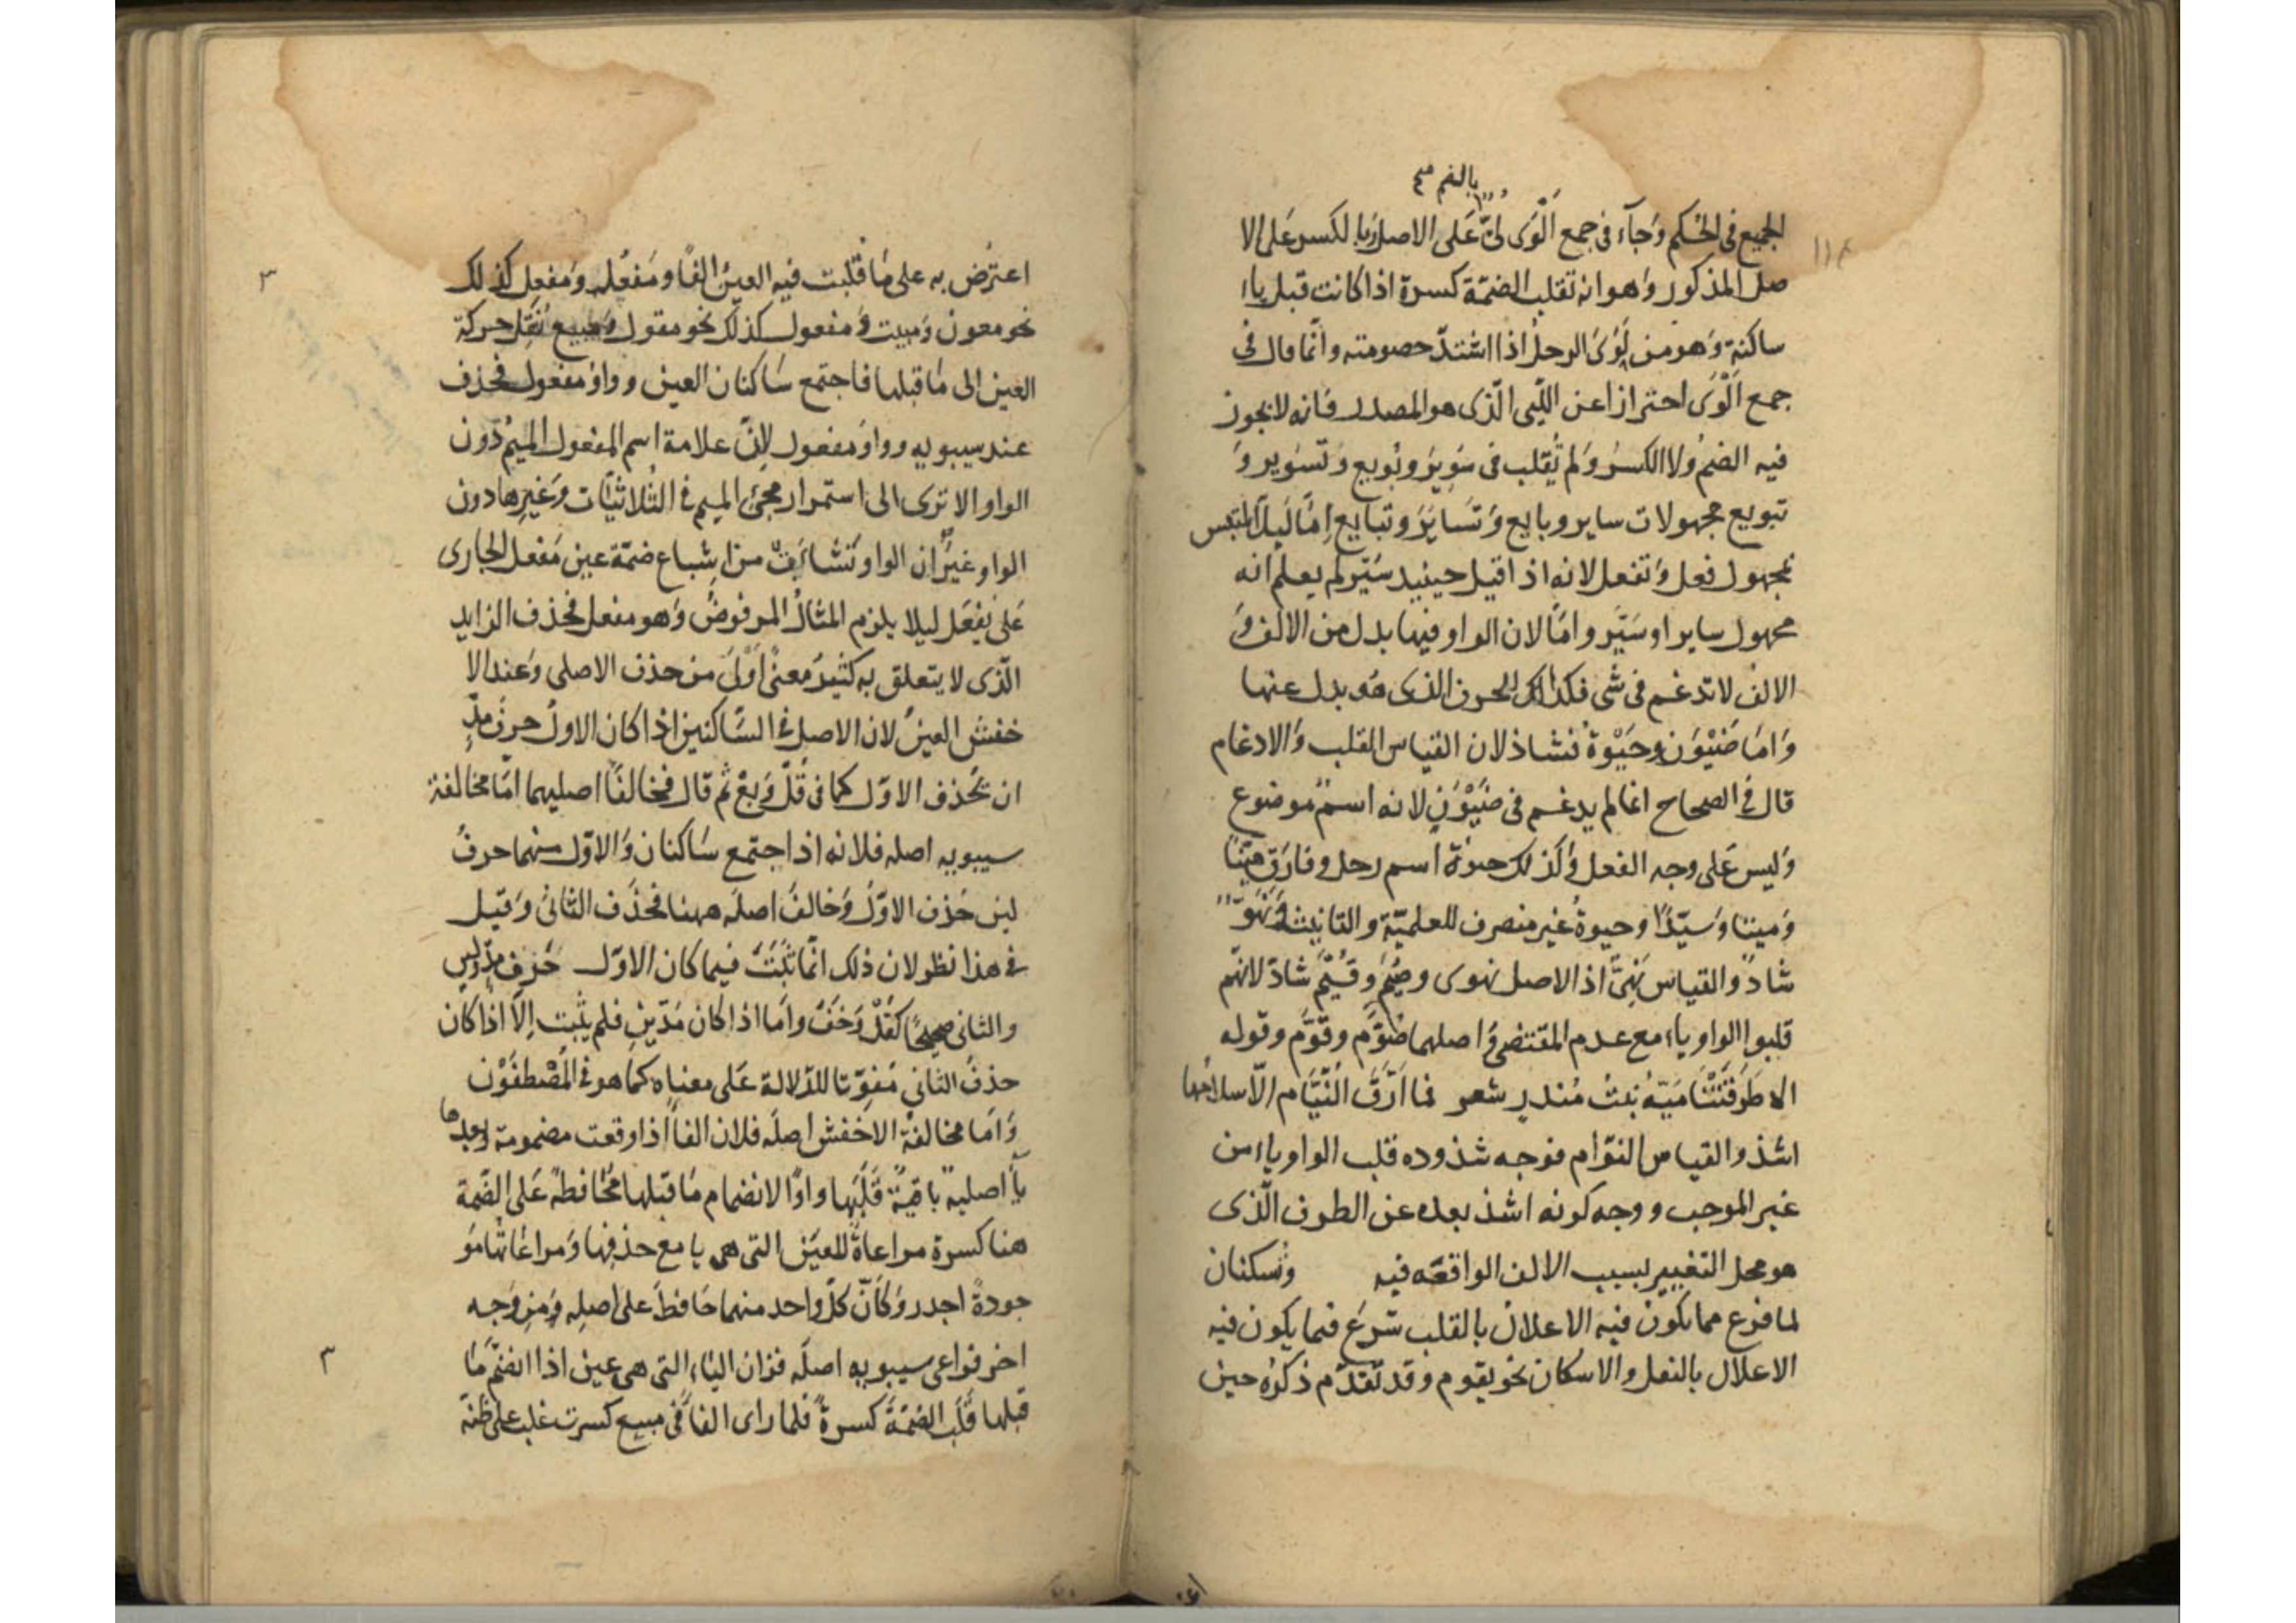 بالضم صح
الجميع فى الحكم وَجآء فى جمع اَلْوَى لُىٌّ عَلى الاصل وَبالكسر عَلى الا
صل المذكور وَهو انه تقلب الضمّة كسرة اذا كانت قبل ياء
ساكنة وَهو من لَوِىَ الرجلُ اذا اشتدّ خصومته وانّما قال فى
جمع اَلْوَى احترازا عن اللّيى الّذى هو المصدر فانه لا يجوز
فيه الضمُ ولا الكسرُ وَلم تُقلب فى سُوِيرَ وبُويع وَتُسُوير وَ
تبويع مجهولات ساير وبايع وَتَسايَرَ وتبايع اِمّا لَيلّا يلتبس
بمجهول فعل وَتفعل لانه اذا قيل حينيد سُيّر لم يعلم انه
مجهول ساير او سَيّر وامّا لان الواو فيها بدل من الالف وَ
الالف لا تدغم فى شى فكذلك الحرف الذى هُو بدل عنها
وَامّا ضَيْوَن وحَيْوة فشاذ لان القياس القلب وَالادغام
قال فى الصحاح انما لم يدغم فى ضَيْوَنٍ لانه اسمٌ موضوع
وَليس عَلى وجه الفعل وَكذلك حيوة اسم رجل وفارَق هيّنًا
وَميتا وَسيّدًا وحيوةُ غير منصرف للعلميّة والتانيث وَنَهُوّ
شاذ والقياس نَهِىٌّ اذ الاصل نهوى وصُيَّم وقُيَّم شاذ لانّهم
قلبوا الواو ياء مع عدم المقتضى وَاصلهما صُوَّم وقُوَّم وقوله
الا طَرَقَتْنَا مَيّة بْنتُ مُنذرٍ شعر فما اَرَّقَ النُّيَّام الّا سلامُها
اشذ والقياس النوّام فوجه شذوذه قلب الواو ياء من
غير الموجب ووجه كونه اشذ بعده عن الطرف الّذى
هو محل التغيير بسبب الالف الواقعة فيه وتُسكنان
لما فرغ مما يكون فيه الاعلال بالقلب شرعَ فيما يكون فيه
الاعلال بالنقل والاسكان نحو يقوم وقد تقدّم ذكرُه حين
اعترُض به على مَا قُلبت فيه العينُ الفًا ومَفعُل وَمَفعِل كذلك
نحو معون وَمبيت وَمفعول كذلك نحو مقول وَمبيع نُقل حركة
العين الى مَا قبلها فاجتمع سَاكنان العين وواوُ مفعول فحُذف
عند سيبويه وواوُ مفعول لِانّ علامة اسم المفعول الميمُ دُون
الواو الا ترى الى استمرار مجئ الميم فى الثُلاثيّات وَغيرِها دون
الواو غيرَ اَن الواو تنشا يَقُ من اِشباع ضمّة عين مَفعل الجارى
عَلى يفعَل ليلا يلزم المثالُ المرفوضُ وَهو مفعل فحُذف الزايد
الّذى لا يتعلق به كثيرُ معنىً اَوْلىَ من حذف الاصلى وَعند الا
خفش العينُ لان الاصل فى السّاكنين اذا كان الاولُ حرفَ مدٍّ
ان يُحْذف الاوّل كما فى قُلْ وَبِعْ ثم قال فخالفَا اصليهما امّا مخالفة
سيبويه اصله فلانه اذا اجتمع سَاكنان وَالاوّل منهما حرفُ
لين حُذف الاوّلُ وَخالفَ اصلَه ههنا فحُذَف الثانىَ وَقيل
فى هذا نظر لان ذلك انّما ثبَتَ فيما كان الاوّل حرف مدٍّ ولين
والثانى صحيحًا كقُلْ وَخَفْ وامّا اذا كان مَدّينِ فلم يثبت اِلّا اذا كان
حذفُ الثانى مُفوِّتا للدّلالة عَلى معناه كما هو فى المُصْطفَوْن
وَامّا مخالفة الاخفش اصلَه فلان الفاَ اذا وقعت مضمومة وَبعدها
يآ اصلية باقيةٌ قلبَها واوًا لانضمام مَا قبلها مُحَافظةً عَلى الضّمة
هنا كسرة مراعاةً للعَين التى هى يا مع حذفِها وَمراعَاتُها مَو
جودةً اجدر وَكَاَنّ كلَّ واحد منهما حَافظَ على اصلِه وَمِن وَجه
اخر فراعى سيبويه اصلَه فزان الياء التى هى عين اذا انضمّ مَا
قبلها قُلبت الضمّةُ كسرةً فلما راى الفاَ فى مبيع كسرت غلب على ظنّه